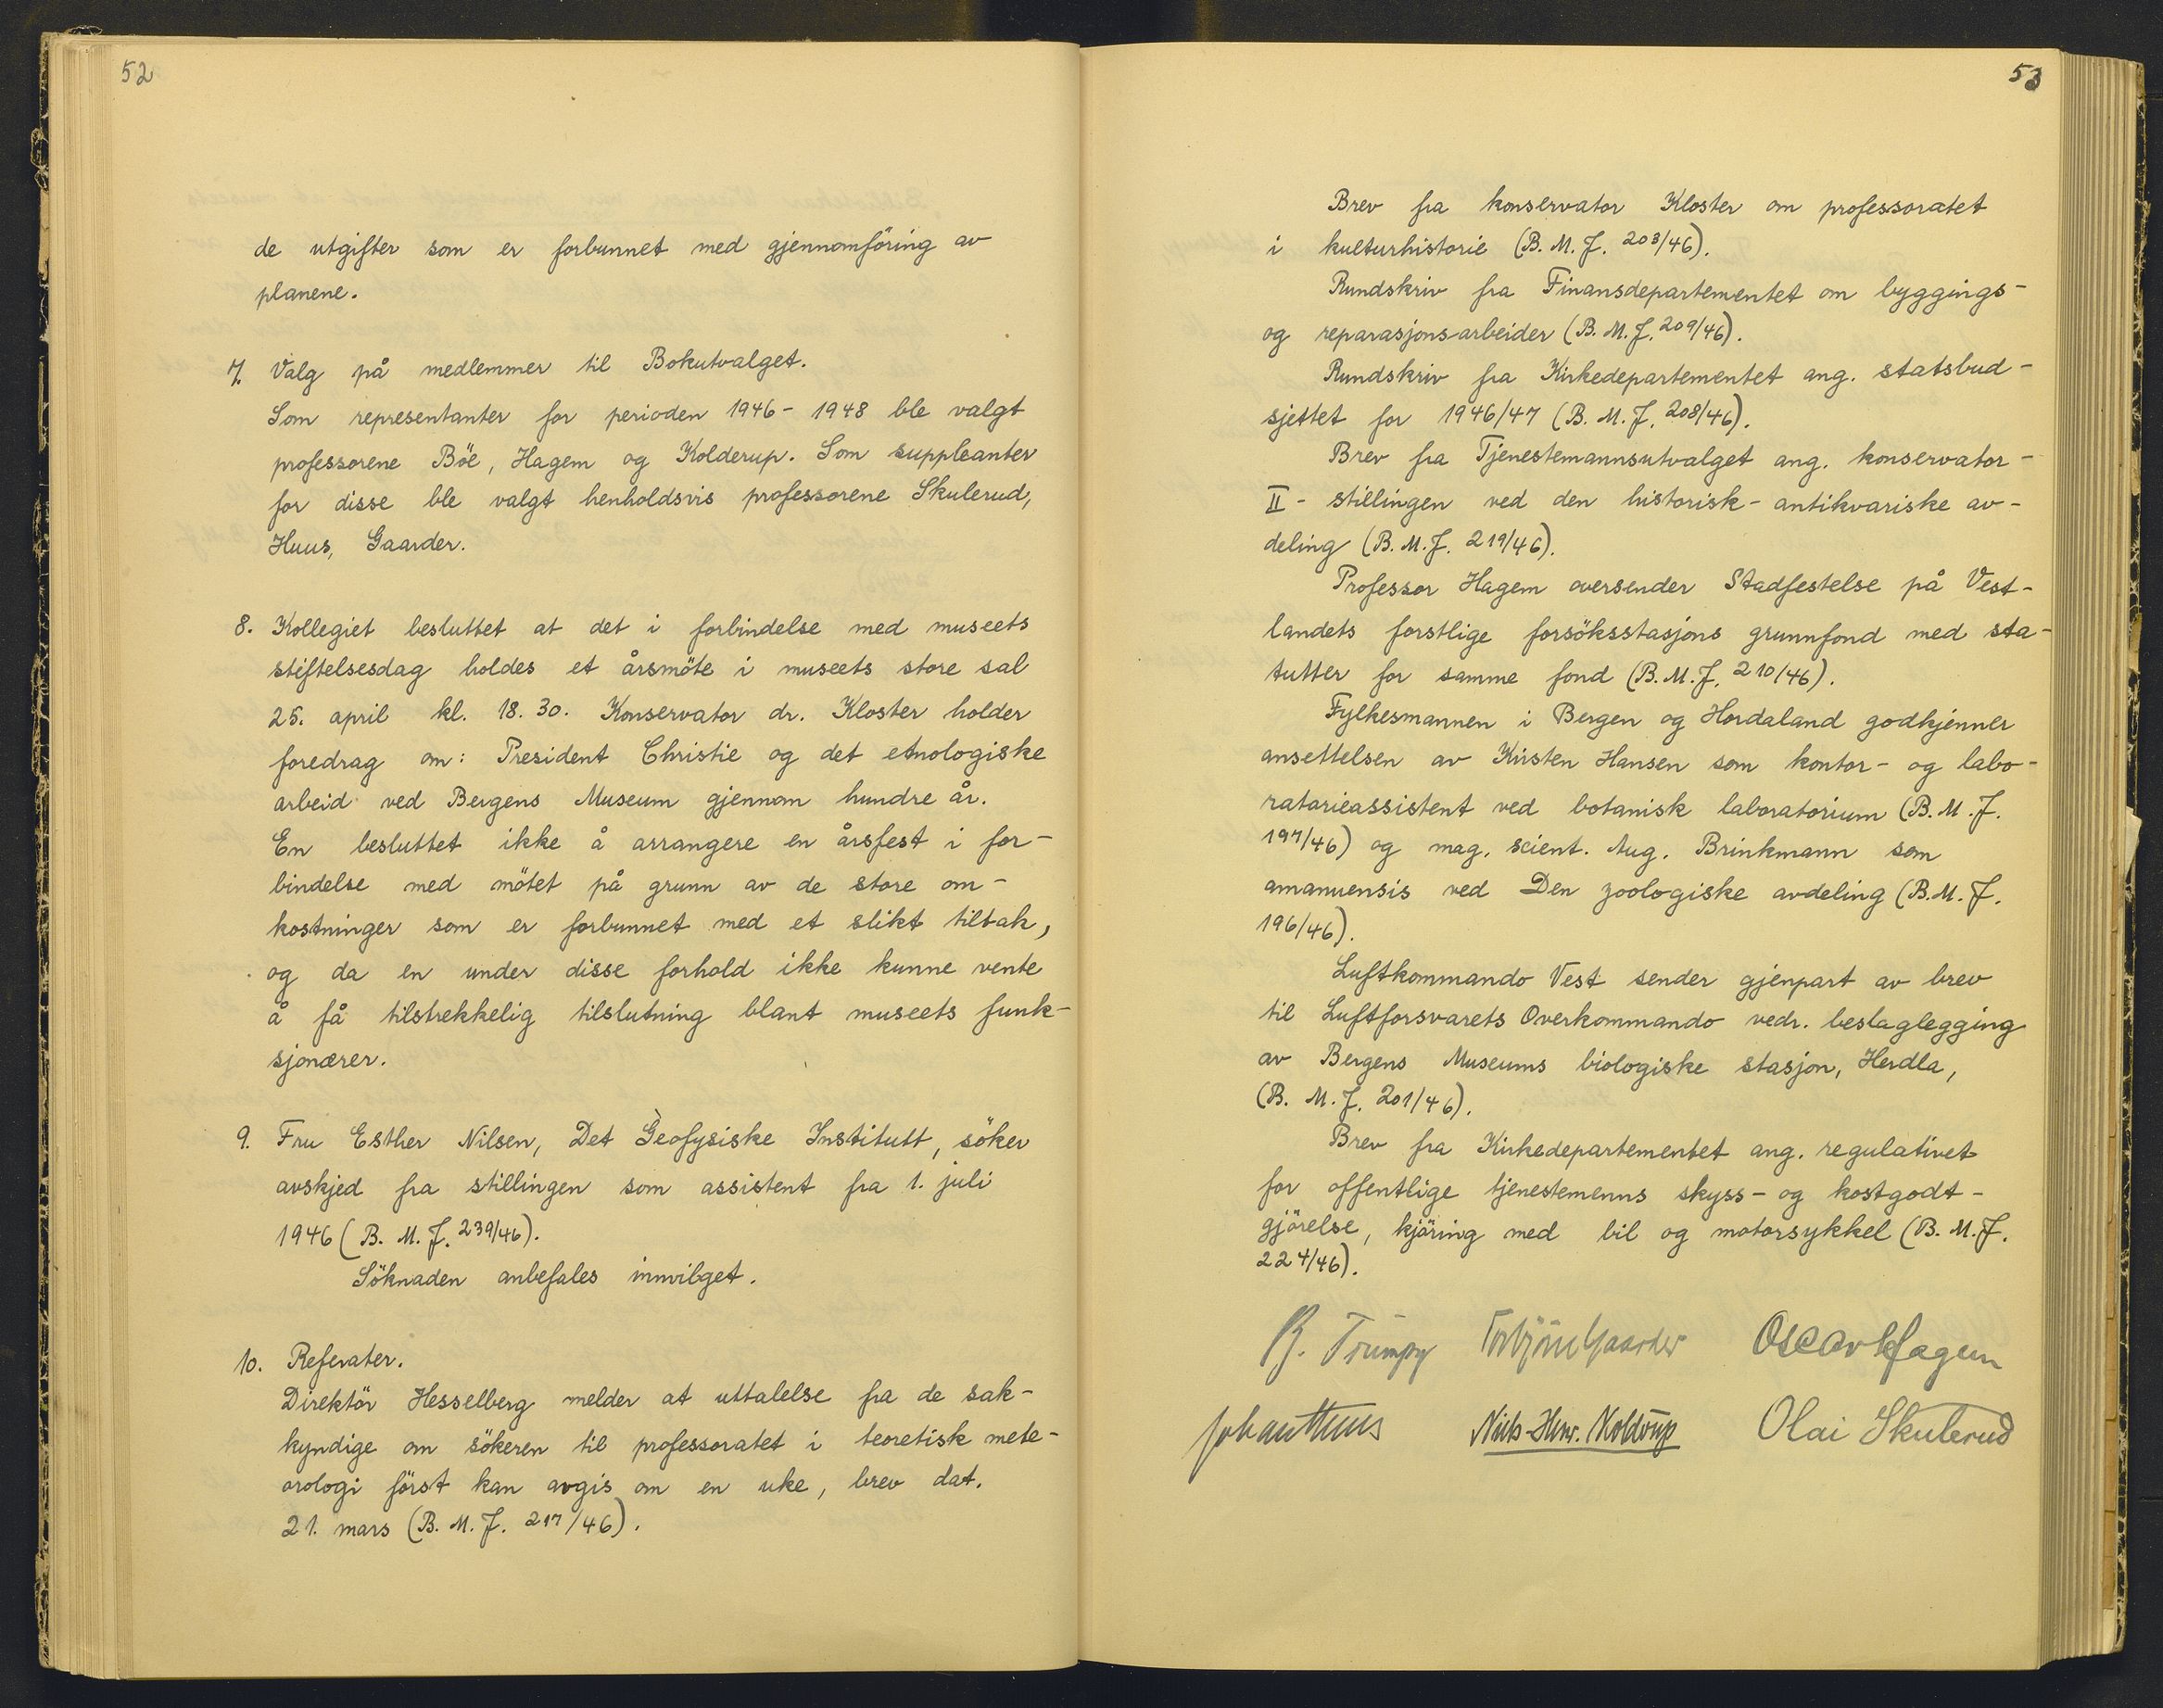 52
de utgifter som er forbunnet med gjennomföring av
planene.
7. Valg på medlemmer til Bokutvalget.
Som representanter for perioden 1946 - 1948 ble valgt
professorene Böe, Hagem og Kolderup. Som suppleanter
for disse ble valgt henholdsvis professorene Skulerud,
Huus, Gaarder.
8. Kollegiet besluttet at det i forbindelse med museets
stiftelsesdag holdes et årsmöte i museets store sal
25. april kl. 18.30. Konservator dr. Kloster holder
foredrag om: President Christie og det etnologiske
arbeid ved Bergens Museum gjennom hundre år.
En besluttet ikke å arrangere en årsfest i for-
bindelse med mötet på grunn av de store om-
kostninger som er forbunnet med et slikt tiltak,
og da en under disse forhold ikke kunne vente
å få tilstrekkelig tilslutning blant museets funk-
sjonærer.
9. Fru Esther Nilsen, Det Geofysiske Institutt, söker
avskjed fra stillingen som assistent fra 1. juli
1946 (B. M. J. 239/46).
Söknaden anbefales innvilget.
10. Referater.
Direktör Hesselberg melder at uttalelse fra de sak-
kyndige om sökeren til professoratet i teoretisk mete-
orologi först kan avgis om en uke, brev dat.
21. mars (B. M. J. 217/46).
53
Brev fra konservator Kloster om professoratet
i kulturhistorie (B. M. J. 203/46).
Rundskriv fra Finansdepartementet om byggings-
og reparasjonsarbeider (B. M. J. 209/46).
Rundskriv fra Kirkedepartementet ang. statsbud-
sjettet for 1946/47 (B. M. J. 208/46).
Brev fra Tjenestemannsutvalget ang. konservator-
II - stillingen ved den historisk - antikvariske av-
deling (B. M. J. 219/46).
Professor Hagem oversender Stadfestelse på Vest-
landets forstlige forsöksstasjons grunnfond med sta-
tutter for samme fond (B. M. J. 210/46).
Fylkesmannen i Bergen og Hordaland godkjenner
ansettelsen av Kirsten Hansen som kontor- og labo-
ratorieassistent ved botanisk laboratorium (B. M. J.
197/46) og mag. scient. Aug. Brinkmann som
amanuensis ved Den zoologiske avdeling (B. M. J.
196/46).
Luftkommando Vest sender gjenpart av brev
til Luftforsvarets Overkommando vedr. beslaglegging
av Bergens Museums biologiske stasjon, Herdla,
(B. M. J. 201/46).
Brev fra Kirkedepartementet ang. regulativet
for offentlige tjenestemenns skyss- og kostgodt-
gjörelse, kjöring med bil og motorsykkel (B. M. J.
224/46).
B. Trumpy Torbjörn Gaarder Oscar Hagem
Johan Huus Niels-Henr. Kolderup Olai Skulerud